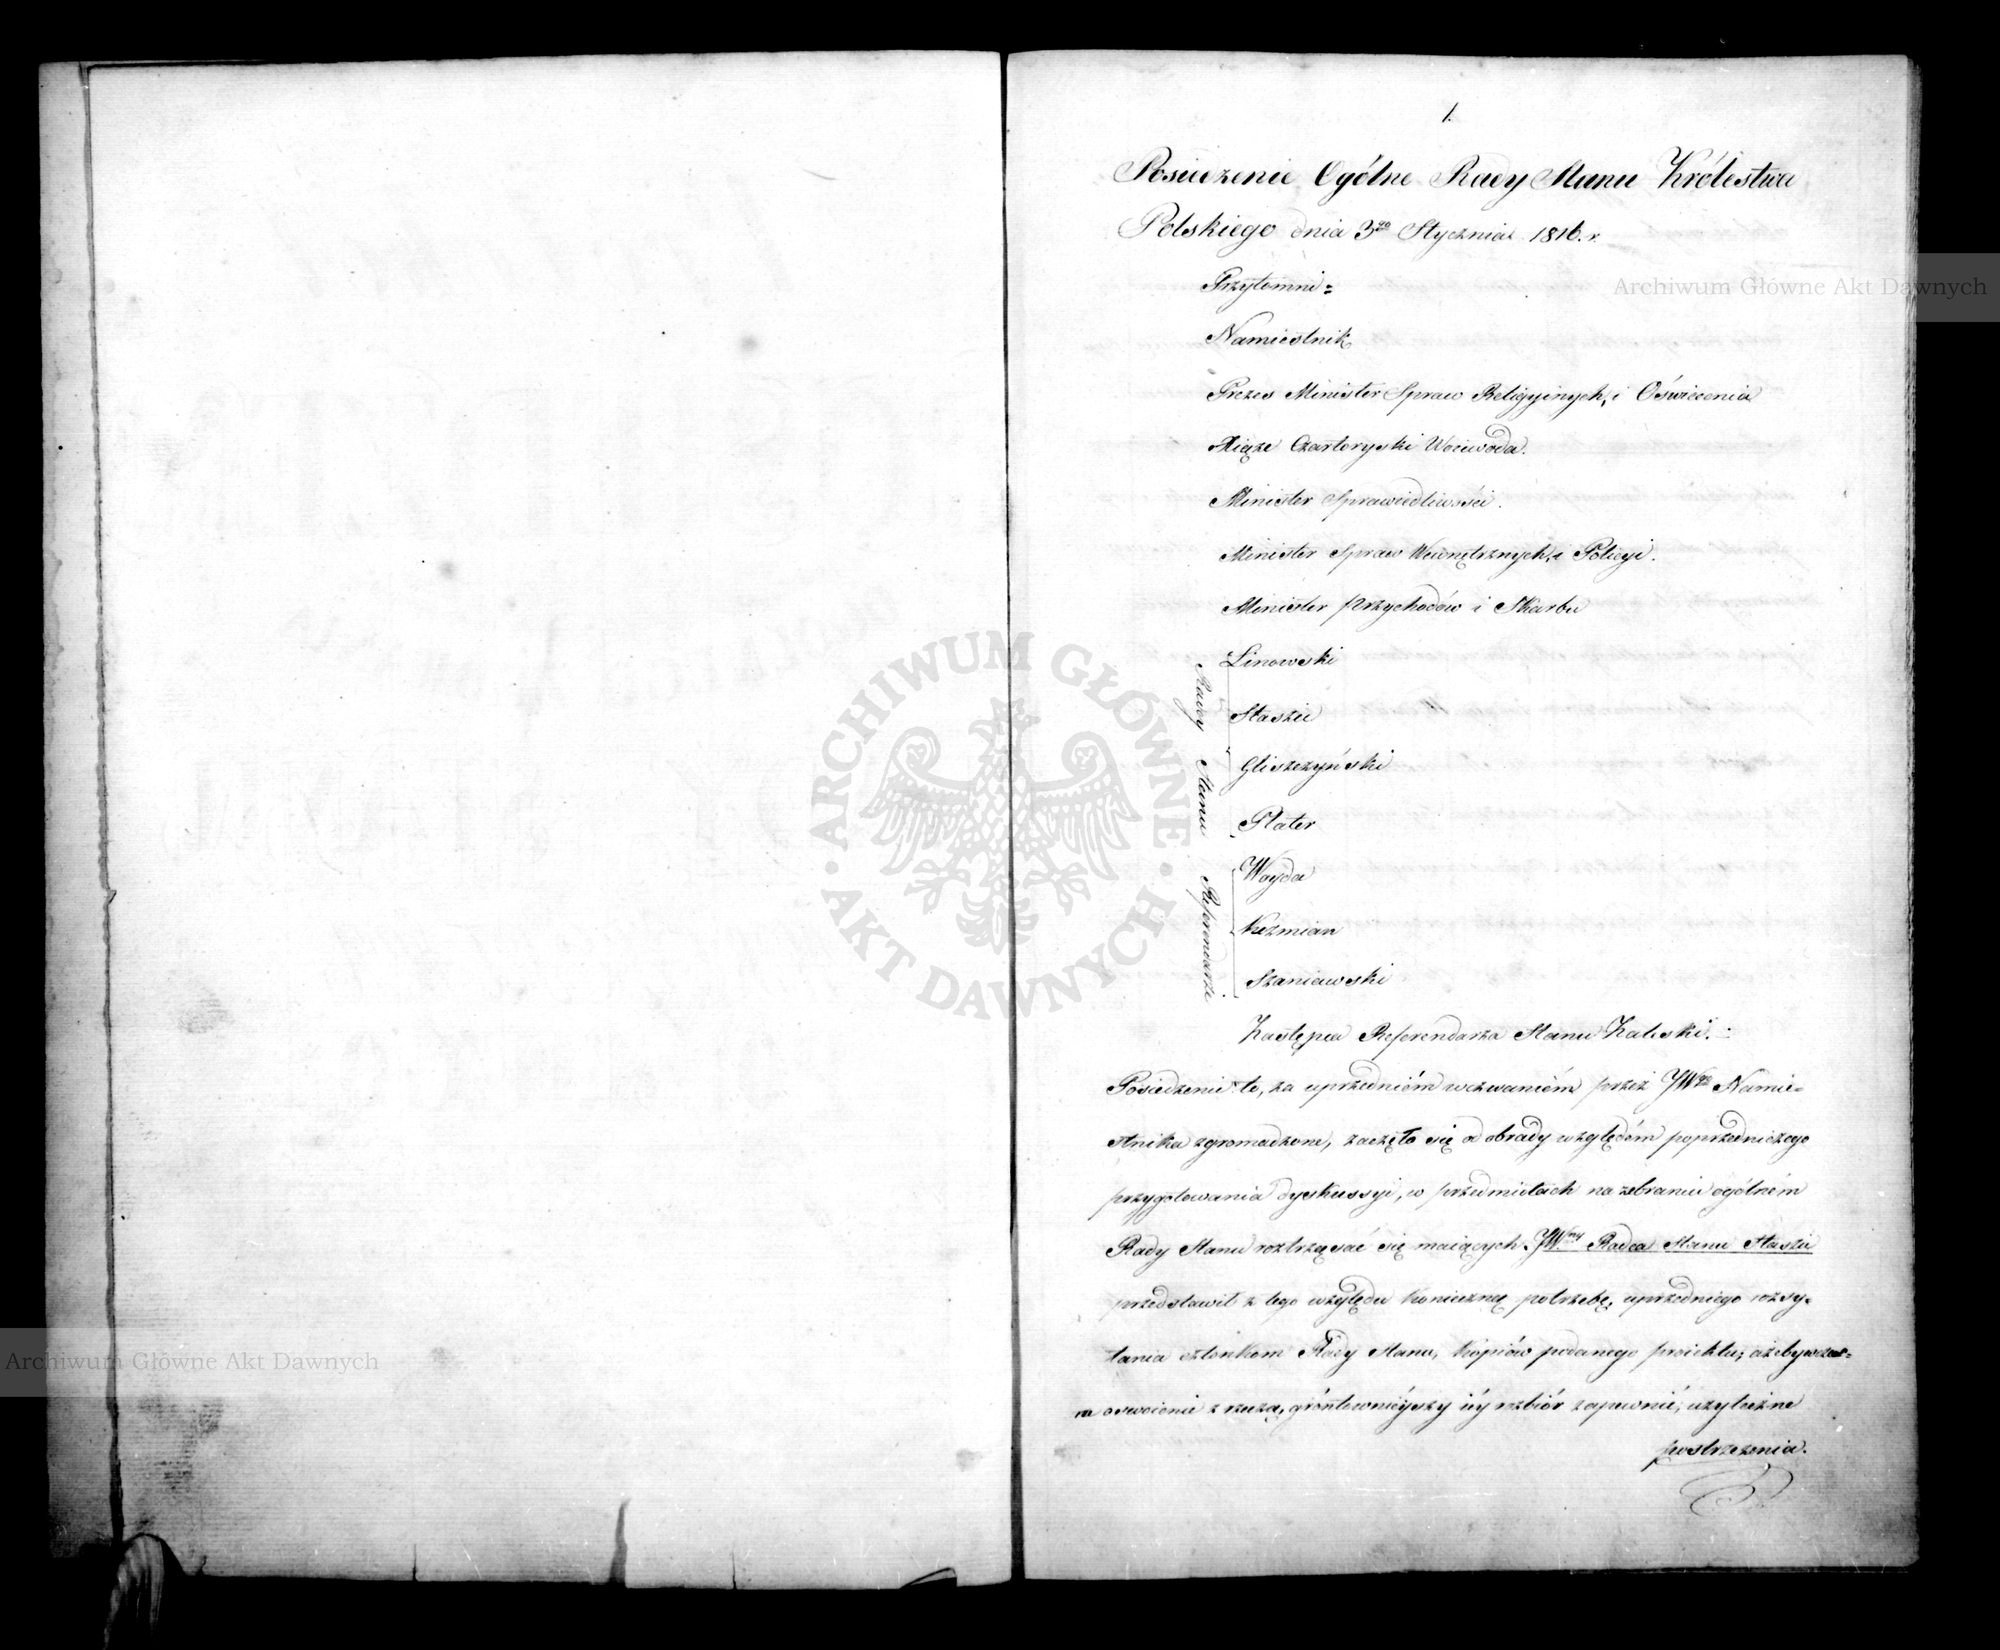 1.
Posiedzenie Ogólne Rady Stanu Królestwa
Polskiego dnia 3go Stycznia 1816. r.
Przytomni =
Namiestnik
Prezes Minister Spraw Religyinych, i Oświecenia
Xiąże Czartoryski Woiewoda.
Minister Sprawiedliwości.
Minister Spraw Wewnętrznych, i Policyi.
Minister Przychodów i Skarbu
Radcy Stanu
Linowski
Staszic
Gliszczyński
Plater
Referendarze
Woyda
Koźmian
Szaniawski
Zastępca Referendarza Stanu Zaleski. =
Posiedzenie to, za uprzedniém wezwaniém przez JWgo Namie=
stnika zgromadzone, zaczęło się od obrady względem poprzedniczego
przygotowania dyskussyi, w przedmiotach na zebraniu ogólném
Rady Stanu roztrząsać się maiących. JWny Radca Stanu Staszic
przedstawił z tego względu konieczną potrzebę, uprzedniego rozsy=
łania członkom Rady Stanu, kopiów podanego proiektu; ażeby wczes=
ne oswoienie z rzeczą, gróntownieyszy iéy rozbiór zapewnić, użyteczne
postrzeżenia.
Archiwum Główne Akt Dawnych
Archiwum Główne Akt Dawnych
ARCHIWUM GŁÓWNE · AKT DAWNYCH ·